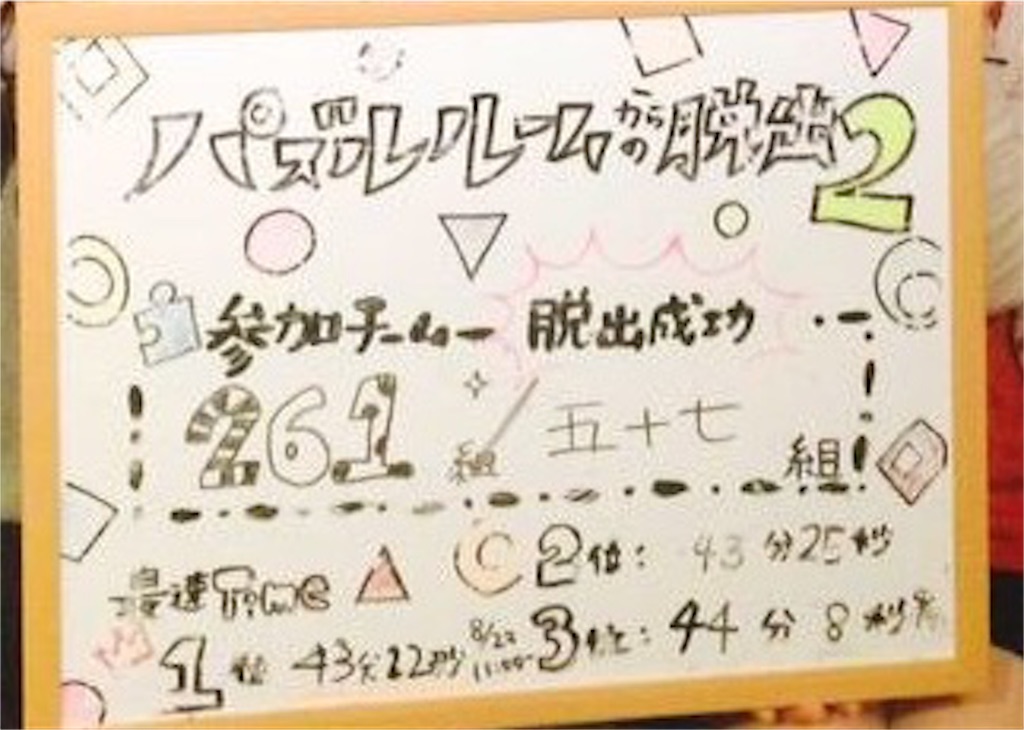 パズルルームからの脱出2
参加チームー 脱出成功
261組 五十七 組!
最速Time 2位: 43分25秒
1位 43分22秒 3位: 44分8秒